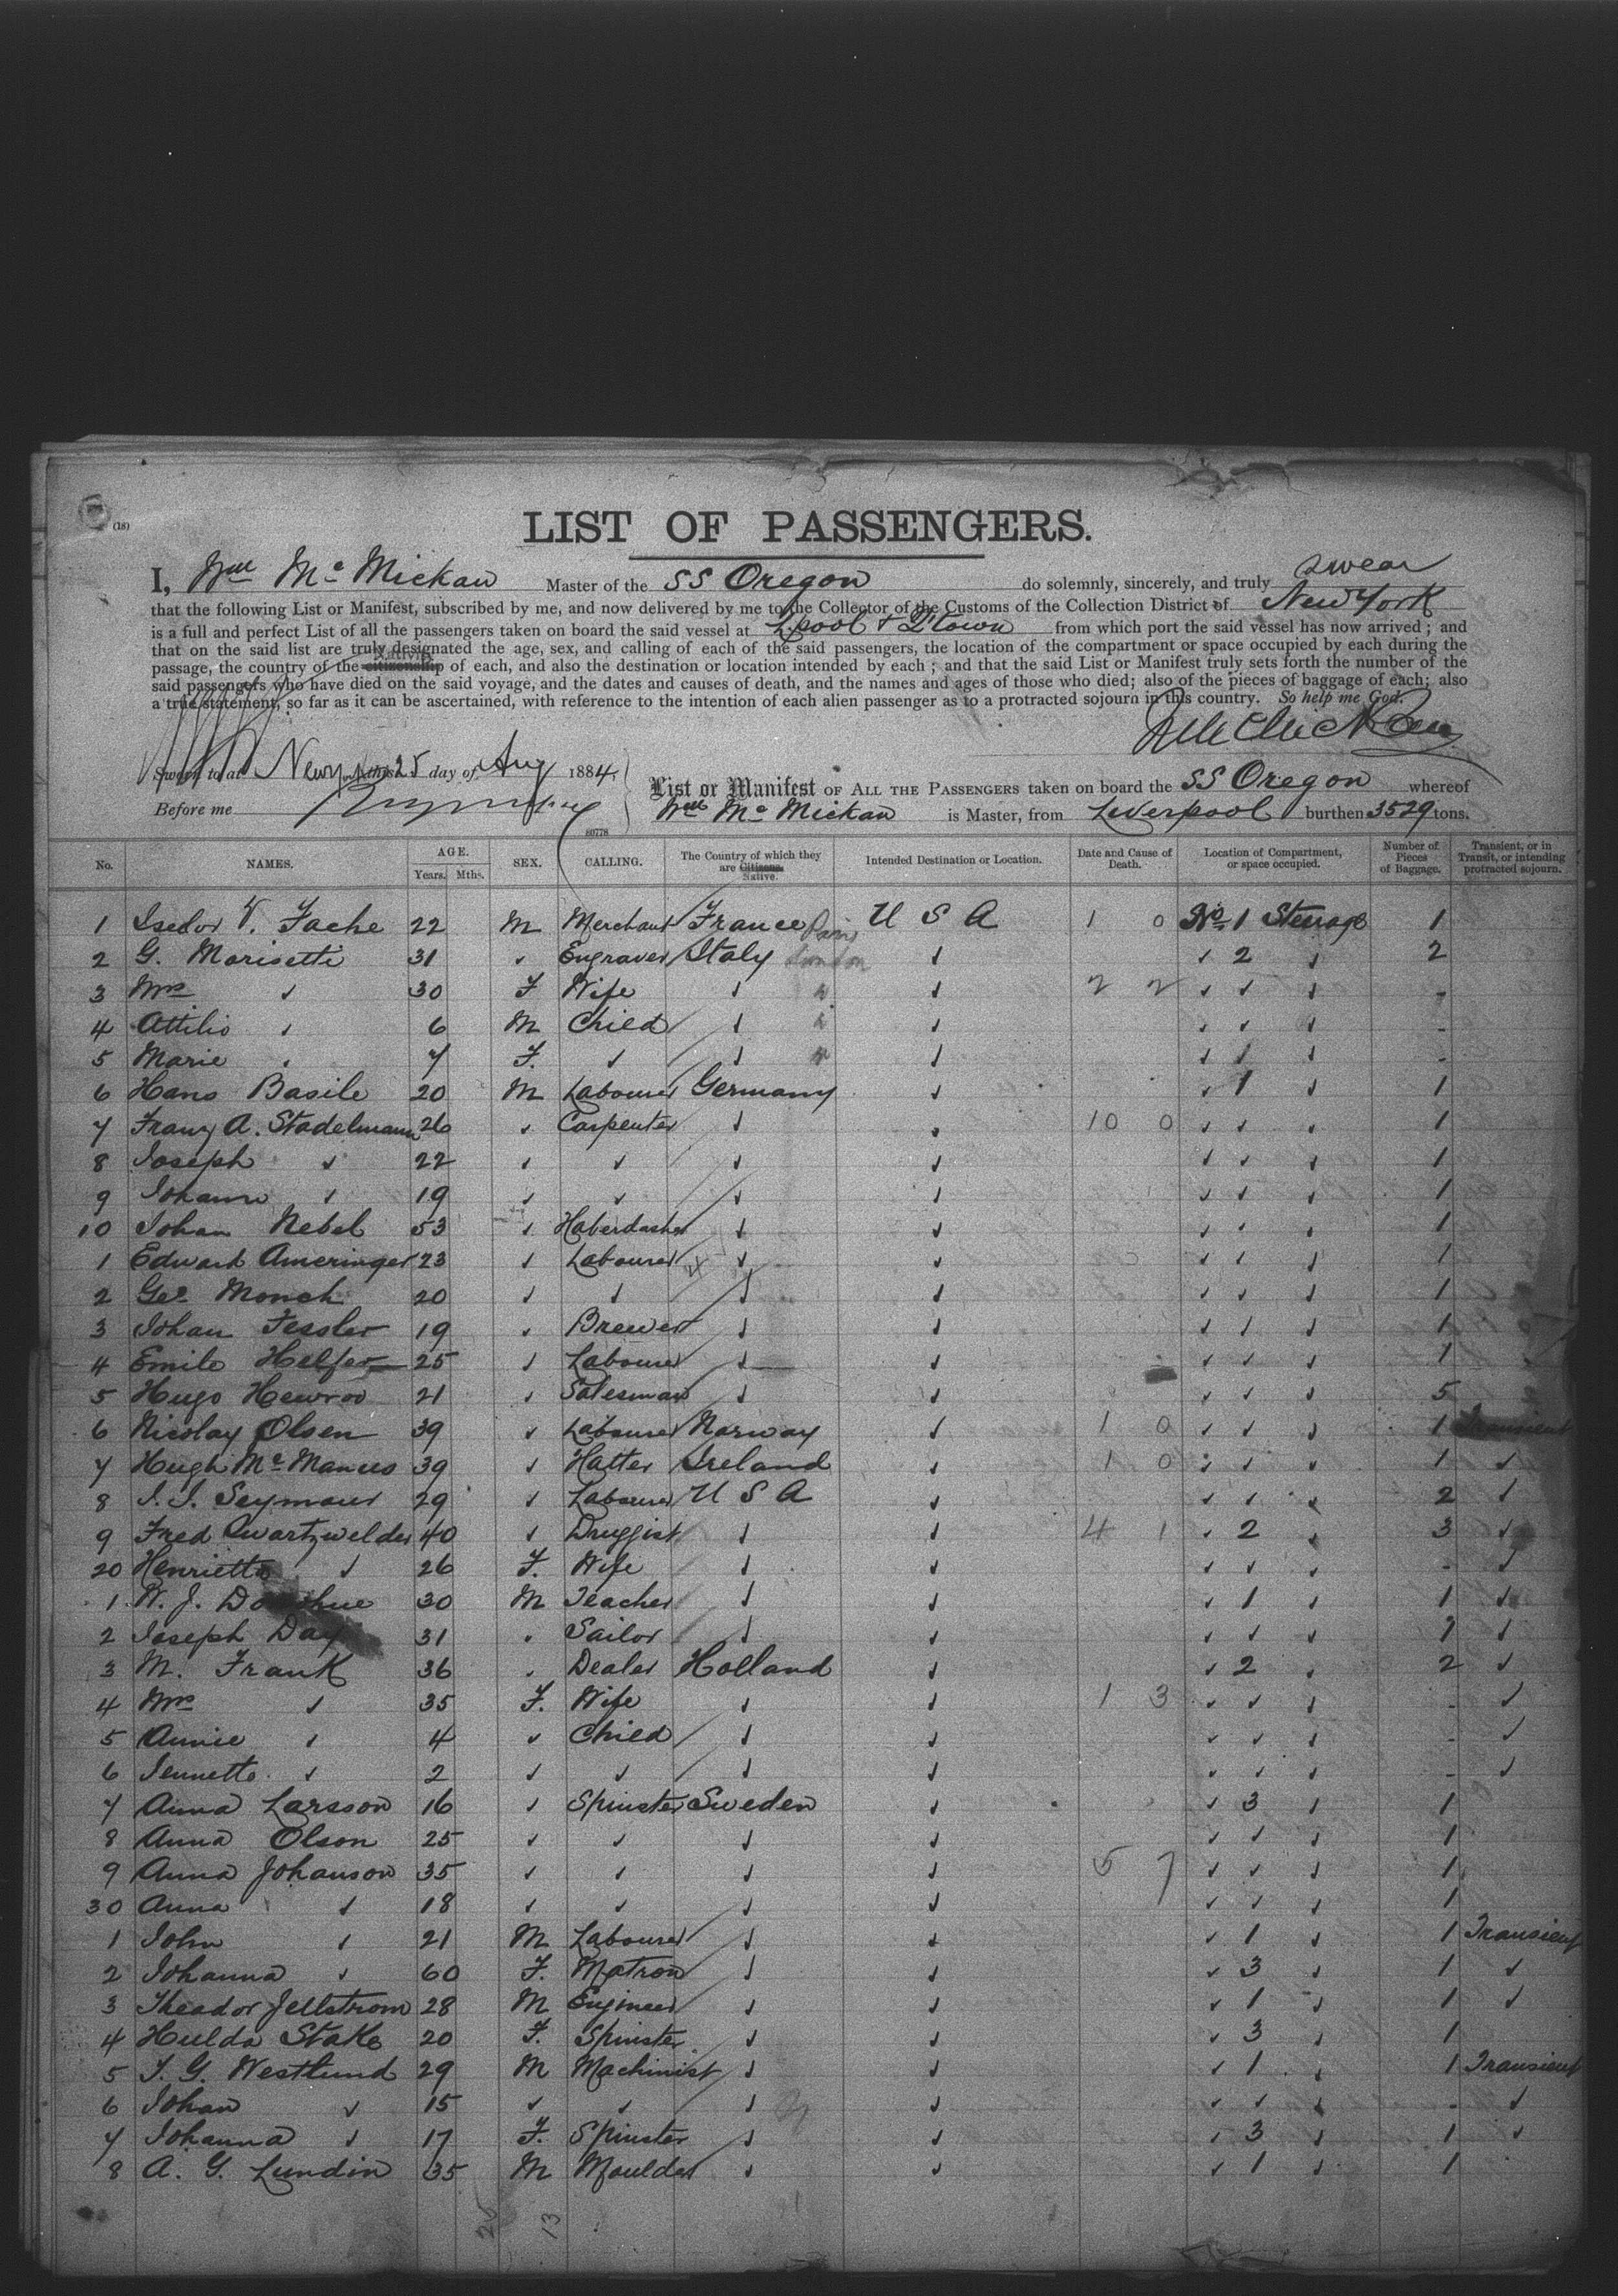 (18)
LIST OF PASSENGERS.
I, Wm Mc Mickan Master of the SS Oregon do solemnly, sincerely, and truly swear
that the following List or Manifest, subscribed by me, and now delivered by me to the Collector of the Customs of the Collection District of New York
is a full and perfect List of all the passengers taken on board the said vessel at L'pool & Q'town from which port the said vessel has now arrived; and
that on the said list are truly designated the age, sex, and calling of each of the said passengers, the location of the compartment or space occupied by each during the
Native
passage, the country of the citizenship of each, and also the destination or location intended by each; and that the said List or Manifest truly sets forth the number of the
said passengers who have died on the said voyage, and the dates and causes of death, and the names and ages of those who died; also of the pieces of baggage of each; also
a true statement, so far as it can be ascertained, with reference to the intention of each alien passenger as to a protracted sojourn in this country. So help me God.
Sworn to at this 25 day of Aug 1884,
Before me
List or Manifest OF ALL THE PASSENGERS taken on board the SS Oregon whereof
Wm Mc Mickan is Master, from Liverpool burthen 3529 tons.
80778
No. NAMES. AGE. Years. Mths. SEX. CALLING. The Country of which they are Citizens. Native. Intended Destination or Location. Date and Cause of Death. Location of Compartment, or space occupied. Number of Pieces of Baggage. Transient, or in Transit, or intending protracted sojourn.
1 Isedor V. Fache 22 M Merchant France Paris U S A 1 0 No 1 Steerage 1
2 G. Morisetti 31 ✓ Engraver Italy London ✓ ✓ 2 ✓ 2
3 Mrs ✓ 30 F Wife ✓ ✓ 2 2 ✓ ✓ ✓ -
4 Attilio ✓ 6 M Child ✓ ✓ ✓ ✓ ✓ -
5 Marie ✓ 7 F. ✓ ✓ ✓ ✓ ✓ ✓ -
6 Hans Basile 20 M Labourer Germany ✓ ✓ 1 ✓ 1
7 Franz A. Stadelmann 26 ✓ Carpenter ✓ ✓ 10 0 ✓ ✓ ✓ 1
8 Joseph ✓ 22 ✓ ✓ ✓ ✓ ✓ ✓ ✓ 1
9 Johann ✓ 19 ✓ ✓ ✓ ✓ ✓ ✓ ✓ 1
10 Johan Nebel 53 ✓ Haberdasher ✓ ✓ ✓ ✓ ✓ 1
1 Edward Ameringer 23 ✓ Labourer ✓ ✓ ✓ ✓ ✓ 1
2 Geo Monch 20 ✓ ✓ ✓ ✓ ✓ ✓ ✓ 1
3 Johan Fessler 19 ✓ Brewer ✓ ✓ ✓ ✓ ✓ 1
4 Emile Helfer 25 ✓ Labourer ✓ ✓ ✓ ✓ ✓ 1
5 Hugo 21 ✓ Salesman ✓ ✓ ✓ ✓ ✓ 5
6 Nicolay Olsen 39 ✓ Labourer Norway ✓ 1 0 ✓ ✓ ✓ 1 Transient
7 Hugh Mc Manus 39 ✓ Hatter Ireland ✓ 1 0 ✓ ✓ ✓ 1 ✓
8 J. J. Seymour 29 ✓ Labourer U S A ✓ ✓ ✓ ✓ 2 ✓
9 Fred Swartzwelder 40 ✓ Druggist ✓ ✓ 4 1 ✓ 2 ✓ 3 ✓
20 Henrietta ✓ 26 F. Wife ✓ ✓ ✓ ✓ ✓ - ✓
1 W. J. Donohue 30 M Teacher ✓ ✓ ✓ 1 ✓ 1 ✓
2 Joseph Day 31 ✓ Sailor ✓ ✓ ✓ ✓ ✓ 1 ✓
3 M. Frank 36 ✓ Dealer Holland ✓ ✓ 2 ✓ 2 ✓
4 Mrs ✓ 35 F. Wife ✓ ✓ 1 3 ✓ ✓ ✓ - ✓
5 Annie ✓ 4 ✓ Child ✓ ✓ ✓ ✓ ✓ - ✓
6 Jennette ✓ 2 ✓ ✓ ✓ ✓ ✓ ✓ ✓ - ✓
7 Anna Larsson 16 ✓ Spinster Sweden ✓ ✓ 3 ✓ 1
8 Anna Olson 25 ✓ ✓ ✓ ✓ ✓ ✓ ✓ 1
9 Anna Johanson 35 ✓ ✓ ✓ ✓ 5 7 ✓ ✓ ✓ 1
30 Anna ✓ 18 ✓ ✓ ✓ ✓ ✓ ✓ ✓ 1
1 John ✓ 21 M Labourer ✓ ✓ ✓ 1 ✓ 1 Transient
2 Johanna ✓ 60 F. Matron ✓ ✓ ✓ 3 ✓ 1 ✓
3 Theador Jellstrom 28 M Engineer ✓ ✓ ✓ 1 ✓ 1 ✓
4 Hulda Stake 20 F. Spinster ✓ ✓ ✓ 3 ✓ 1
5 J. G. Westlund 29 M Machinist ✓ ✓ ✓ 1 ✓ 1 Transient
6 Johan ✓ 15 ✓ ✓ ✓ ✓ ✓ ✓ ✓ - ✓
7 Johanna ✓ 17 F. Spinster ✓ ✓ ✓ 3 ✓ 1 ✓
8 A. G. Lundin 35 M Moulder ✓ ✓ ✓ 1 ✓ 1
25 13